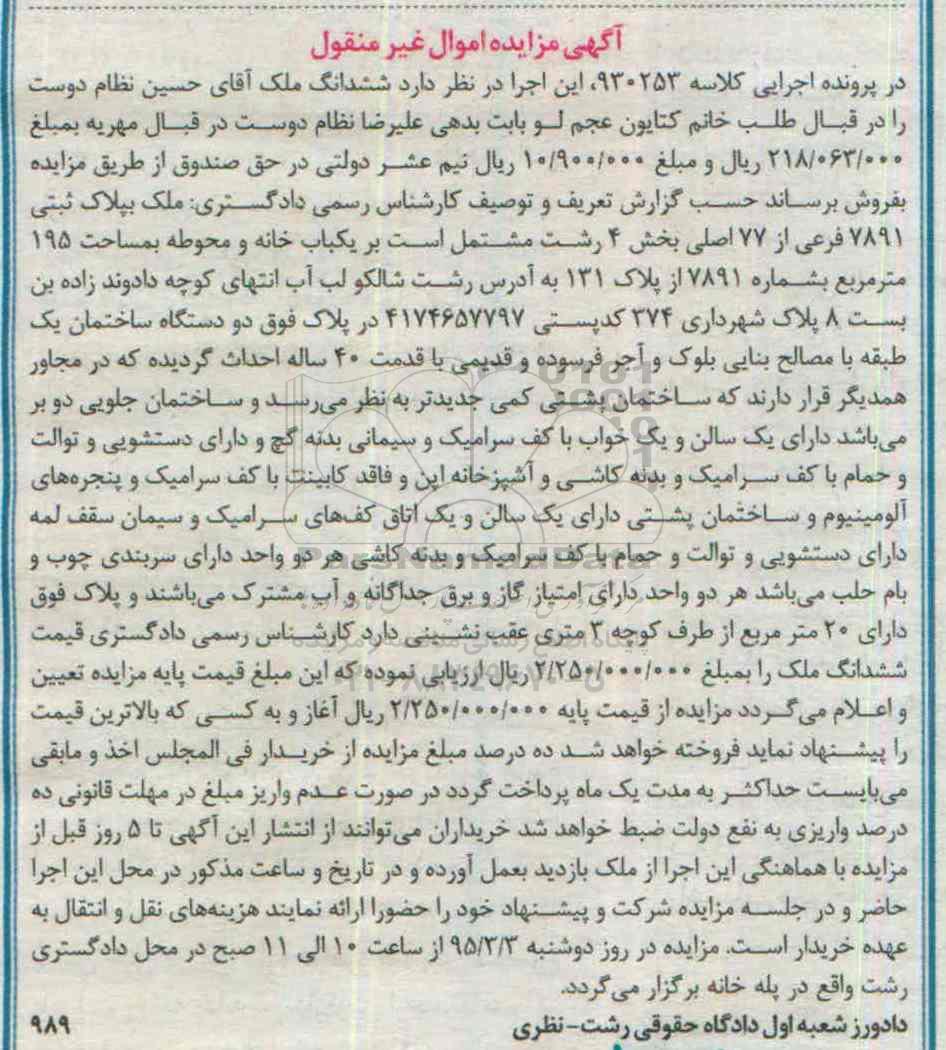 آگهی مزایده اموال غیر منقول
در پرونده اجرایی کلاسه ۹۳۰۲۵۳، این اجرا در نظر دارد ششدانگ ملک آقای حسین نظام دوست
را در قبال طلب خانم کتایون عجم لو بابت بدهی علیرضا نظام دوست در قبال مهریه بمبلغ
۲۱۸/۰۶۳/۰۰۰ ریال و مبلغ ۱۰/۹۰۰/۰۰۰ ریال نیم عشر دولتی در حق صندوق از طریق مزایده
بفروش برساند حسب گزارش تعریف و توصیف کارشناس رسمی دادگستری: ملک بپلاک ثبتی
۷۸۹۱ فرعی از ۷۷ اصلی بخش ۴ رشت مشتمل است بر یکباب خانه و محوطه بمساحت ۱۹۵
مترمربع بشماره ۷۸۹۱ از پلاک ۱۳۱ به آدرس رشت شالکو لب آب انتهای کوچه دادوند زاده بن
بست ۸ پلاک شهرداری ۳۷۴ کدپستی ۴۱۷۴۶۵۷۷۹۷ در پلاک فوق دو دستگاه ساختمان یک
طبقه با مصالح بنایی بلوک و آجر فرسوده و قدیمی با قدمت ۴۰ ساله احداث گردیده که در مجاور
همدیگر قرار دارند که ساختمان پشتی کمی جدیدتر به نظر می‌رسد و ساختمان جلویی دو بر
می‌باشد دارای یک سالن و یک خواب با کف سرامیک و سیمانی بدنه گچ و دارای دستشویی و توالت
و حمام با کف سرامیک و بدنه کاشی و آشپزخانه اپن و فاقد کابینت با کف سرامیک و پنجره‌های
آلومینیوم و ساختمان پشتی دارای یک سالن و یک اتاق کف‌های سرامیک و سیمان سقف لمه
دارای دستشویی و توالت و حمام با کف سرامیک و بدنه کاشی هر دو واحد دارای سربندی چوب و
بام حلب می‌باشد هر دو واحد دارای امتیاز گاز و برق جداگانه و آب مشترک می‌باشند و پلاک فوق
دارای ۲۰ متر مربع از طرف کوچه ۳ متری عقب نشینی دارد کارشناس رسمی دادگستری قیمت
ششدانگ ملک را بمبلغ ۲/۲۵۰/۰۰۰/۰۰۰ ریال ارزیابی نموده که این مبلغ قیمت پایه مزایده تعیین
و اعلام می‌گردد مزایده از قیمت پایه ۲/۲۵۰/۰۰۰/۰۰۰ ریال آغاز و به کسی که بالاترین قیمت
را پیشنهاد نماید فروخته خواهد شد ده درصد مبلغ مزایده از خریدار فی المجلس اخذ و مابقی
می‌بایست حداکثر به مدت یک ماه پرداخت گردد در صورت عدم واریز مبلغ در مهلت قانونی ده
درصد واریزی به نفع دولت ضبط خواهد شد خریداران می‌توانند از انتشار این آگهی تا ۵ روز قبل از
مزایده با هماهنگی این اجرا از ملک بازدید بعمل آورده و در تاریخ و ساعت مذکور در محل این اجرا
حاضر و در جلسه مزایده شرکت و پیشنهاد خود را حضورا ارائه نمایند هزینه‌های نقل و انتقال به
عهده خریدار است. مزایده در روز دوشنبه ۹۵/۳/۳ از ساعت ۱۰ الی ۱۱ صبح در محل دادگستری
رشت واقع در پله خانه برگزار می‌گردد.
دادورز شعبه اول دادگاه حقوقی رشت-نظری
۹۸۹